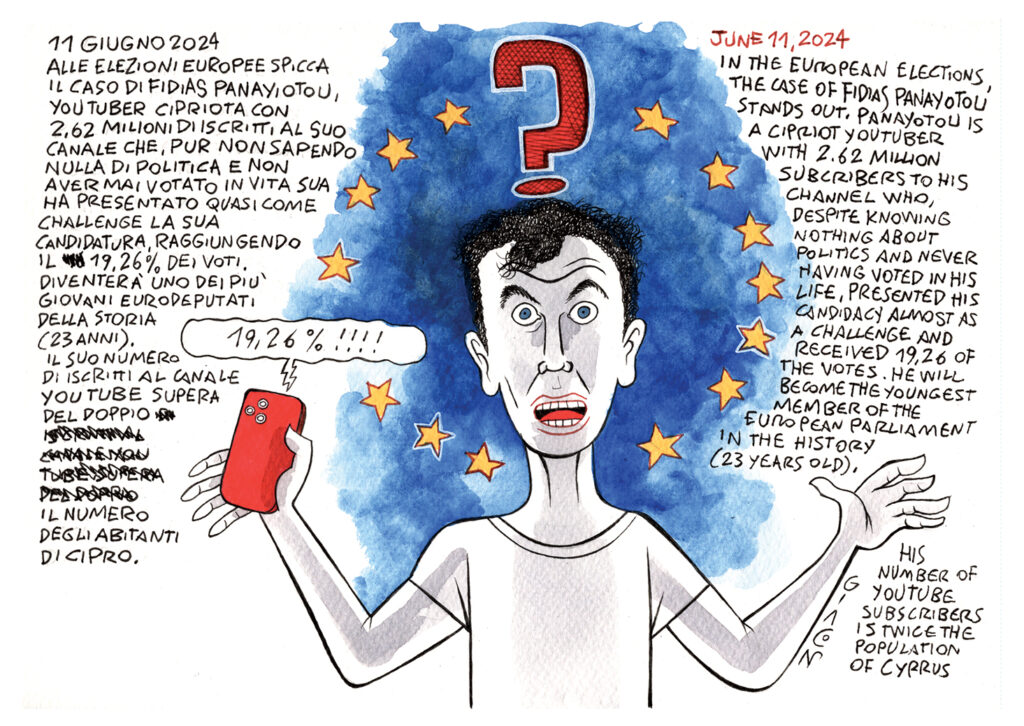 11 GIUGNO 2024
ALLE ELEZIONI EUROPEE SPICCA
IL CASO DI FIDIAS PANAYIOTOU,
YOUTUBER CIPRIOTA CON
2,62 MILIONI DI ISCRITTI AL SUO
CANALE CHE, PUR NON SAPENDO
NULLA DI POLITICA E NON
AVER MAI VOTATO IN VITA SUA
HA PRESENTATO QUASI COME
CHALLENGE LA SUA
CANDIDATURA, RAGGIUNGENDO
IL 19,26% DEI VOTI.
DIVENTERÀ UNO DEI PIÙ
GIOVANI EURODEPUTATI
DELLA STORIA
(23 ANNI).
IL SUO NUMERO
DI ISCRITTI AL CANALE
YOUTUBE SUPERA
DEL DOPPIO
IL NUMERO
DEGLI ABITANTI
DI CIPRO.
19,26% !!!!
?
JUNE 11, 2024
IN THE EUROPEAN ELECTIONS,
THE CASE OF FIDIAS PANAYOTOU,
STANDS OUT. PANAYOTOU IS
A CIPRIOT YOUTUBER
WITH 2.62 MILLION
SUBCRIBERS TO HIS
CHANNEL WHO,
DESPITE KNOWING
NOTHING ABOUT
POLITICS AND NEVER
HAVING VOTED IN HIS
LIFE, PRESENTED HIS
CANDIDACY ALMOST AS
A CHALLENGE AND
RECEIVED 19,26 OF
THE VOTES. HE WILL
BECOME THE YOUNGEST
MEMBER OF THE
EUROPEAN PARLIAMENT
IN THE HISTORY
(23 YEARS OLD).
HIS
NUMBER OF
YOUTUBE
SUBSCRIBERS
IS TWICE THE
POPULATION
OF CYPRUS